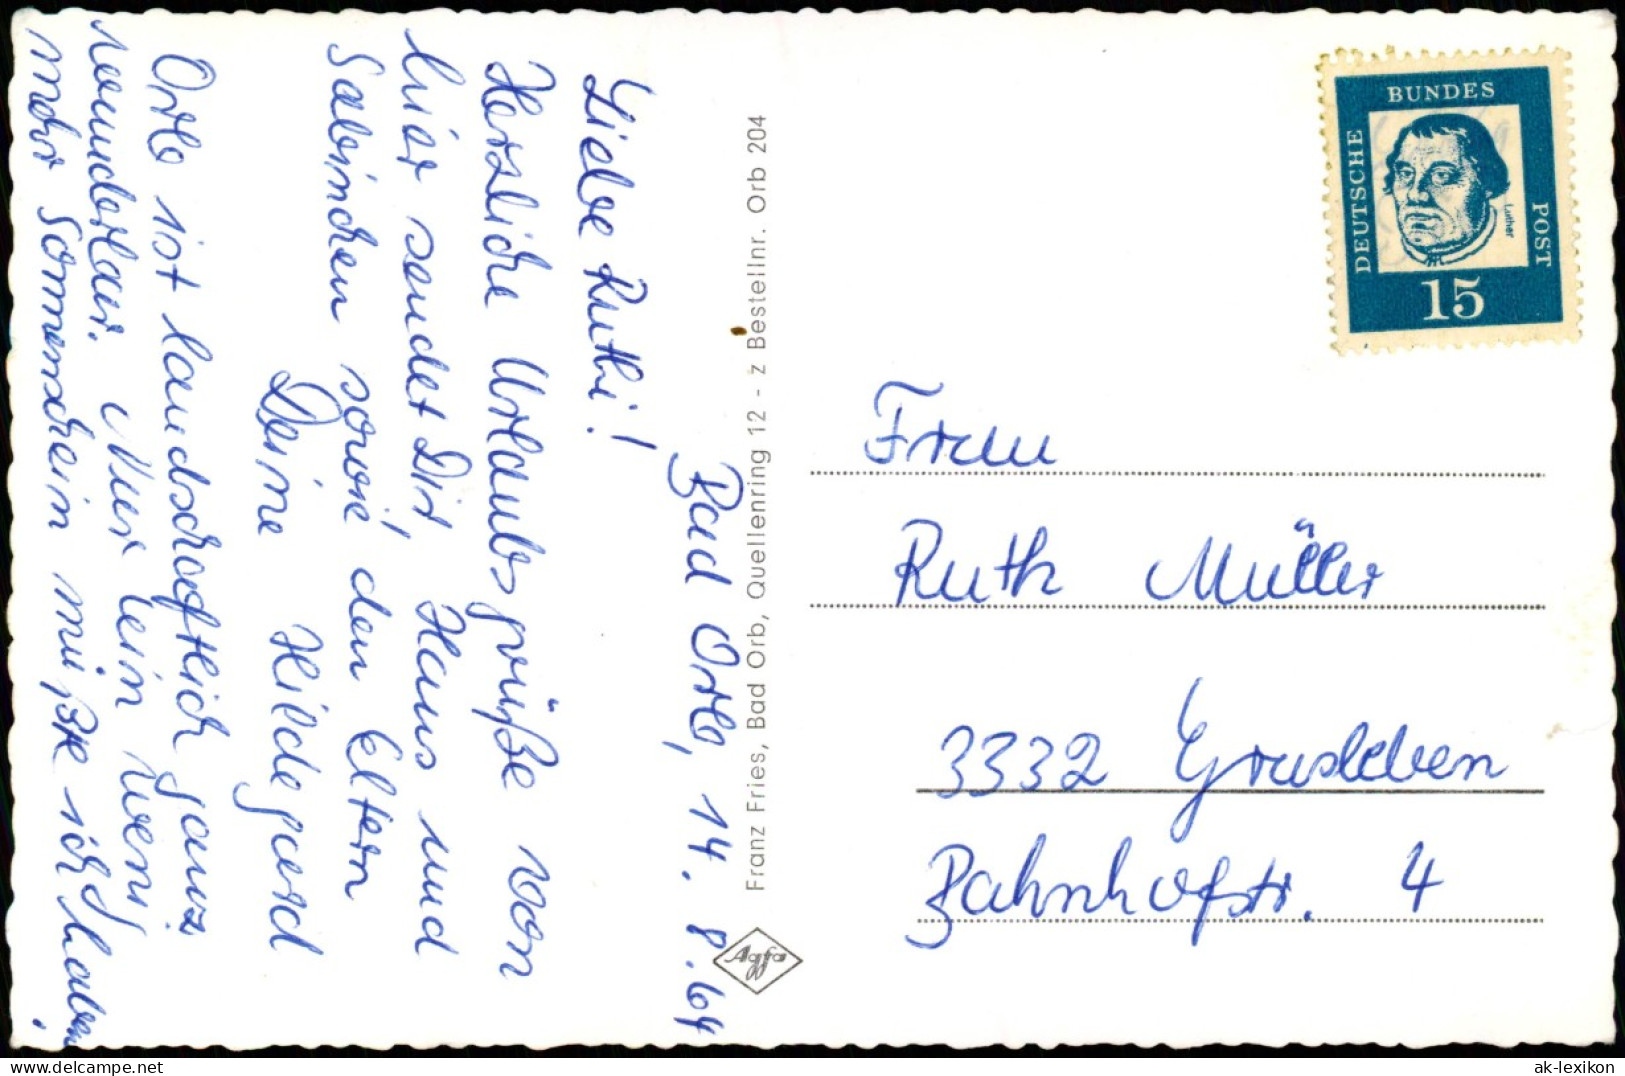 Bad Orb, 14. 8. 64
Liebe Ruthi!
Herzliche Urlaubsgrüße von
hier sendet Dir, Haus und
Sabinchen sowie den Eltern
Deine Hildegard
Orb ist landschaftlich ganz
wunderbar. Nur ein wenig
mehr Sonnenschein müßte ich haben.
Franz Fries, Bad Orb, Quellenring 12 - z Bestellnr. Orb 204
Agfa
DEUTSCHE
BUNDES
POST
Luther
15
Frau
Ruth Müller
3332 Grasleben
Bahnhofstr. 4
ak-lexikon